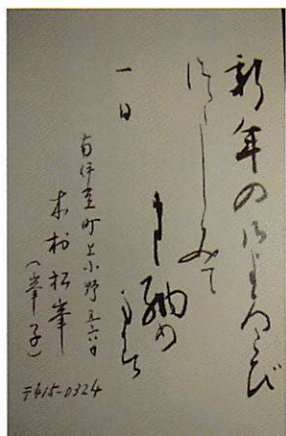 新年の御よろこび
つゝしみて
申し納め
ます
一日
南伊豆町上小野五六日
木村松峯
(峯子)
〒415-0324